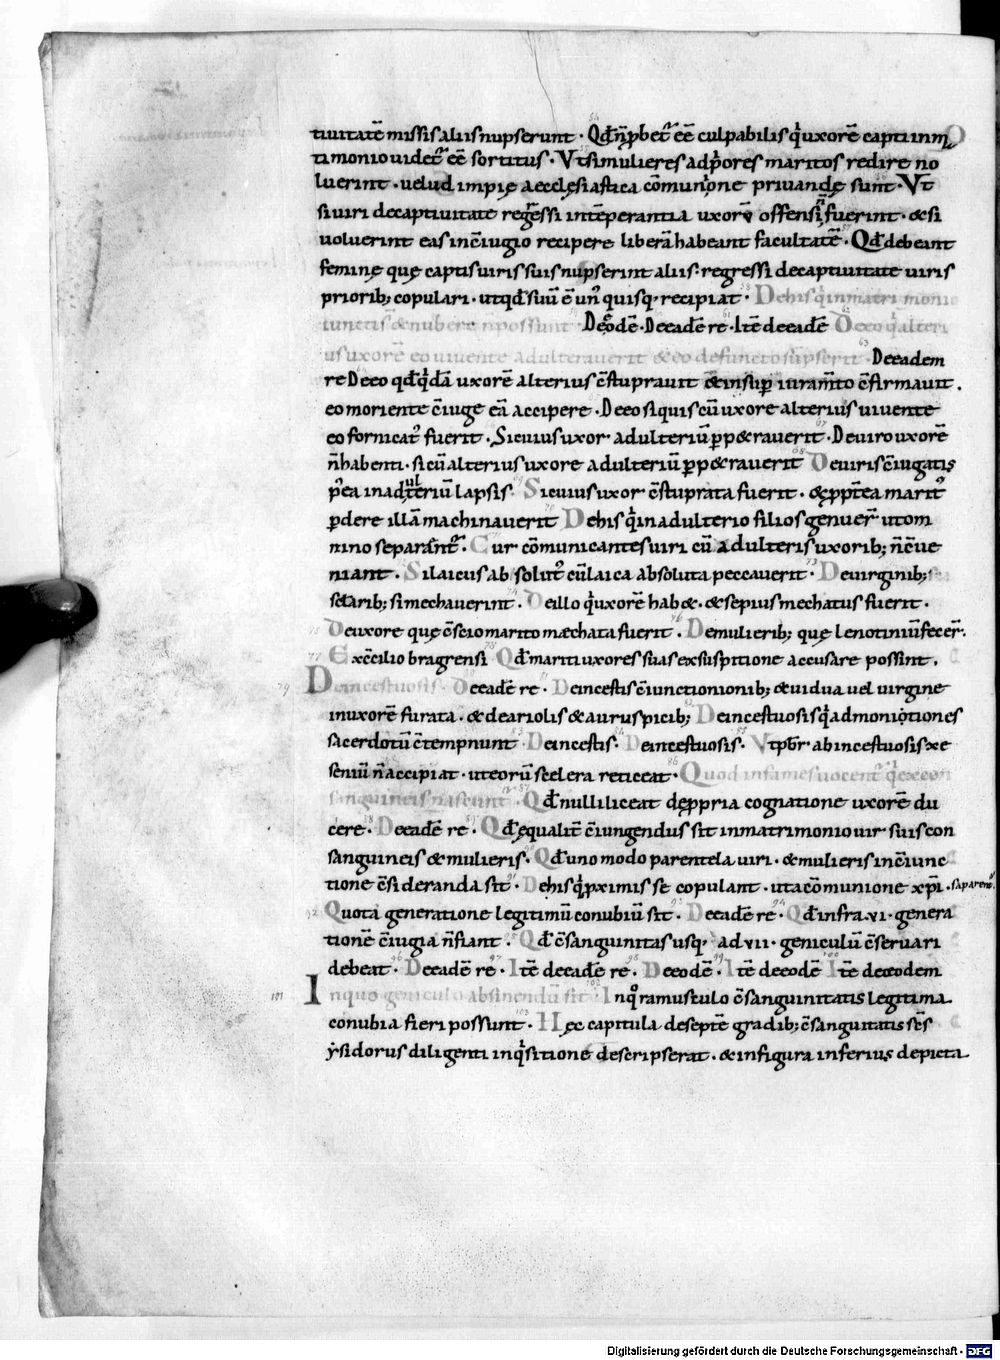 tiuitatē missis aliis nupserunt · Qđ n̄ p̱bet᷒ eē culpabilis q̇ uxorē capti inm̄
timonio uidet᷒ eē sortitus · Vt si mulieres ad p̱ores maritos redire no
luerint · uelud impię aecclęsiastica cōmunione priuandę sunt · Vt
si uiri de captiuitate regressi intēperantia uxorū offensi n̄ fuerint · & si
uoluerint eas in c̄iugio recipere liberā habeant facultatē · Qđ debeant
feminę quę captis uiris suis nupserint aliis · regressi de captiuitate uiris
priorib; copulari · ut qđ suū ē un᷒ quisq · recipiat · De his q̇ in matrimonio
iunctis & nubere n̄ possunt · De eodē · De eadē re · Itē de eadē De eo q̇ alteri
us uxorē eo uiuente adulterauerit & eo defuncto sūpserit · De eadem
re De eo qđ q̇dā uxorē alterius c̄stuprauit & insup̱ iuram̄to c̄firmauit .
eo moriente c̄iuge eā accipere · De eo si quis cū uxore alterius uiuente
eo fornicat᷒ fuerit · Si cuius uxor adulteriū p̱p&rauerit · De uiro uxorē
n̄ habenti · si cū alterius uxore adulteriū p̱p&rauerit De uiris c̄iugatis
p᷒ea in adulteriū lapsis · Si cuius uxor c̄stuprata fuerit · & p̱pt̄ea marit᷒
p̱dere illā machinauerit De his q̇ in adulterio filios genuer̄ ut om
nino separent᷒ · Cur cōmunicantes uiri cū adulteris uxorib; n̄ c̄ue
niant · Si laicus absolut᷒ cū laica absoluta peccauerit · De uirginib;
sclarib; si mechauerint · De illo q̇ uxorē hab& · & sepius mechatus fuerit ·
De uxore quę c̄scio marito mæchata fuerit · De mulierib; quę lenotiniū fecer̄ ·
Ex c̄cilio bragrensi Qđ mariti uxores suas ex suspitione accusare possint .
De incestuosis · De eadē re · De incestis c̄iunctionionib; & uidua uel uirgine
in uxorē furata · & de ariolis & auruspicib; De incestuosis q̇ admonitiones
sacerdotū c̄tempnunt De incestis · De incestuosis · Vt p̄br ab incestuosis xe
seniū n̄ accipiat · ut eorū scelera reticeat · Quod infames uocent᷒ q̇ ex con
sanguineis nascunt᷒ · Qđ nulli liceat de p̱pria cognatione uxorē du
cere · De eadē re · Qđ ęqualit̄ c̄iungendus sit in matrimonio uir suis con
sanguineis & mulieris · Qđ uno modo parentela uiri · & mulieris in c̄iunc
tione c̄sideranda sit · De his q̇ p̱ximis se copulant · ut a cōmunione xp̄i · sꝑarent᷒
Quota generatione legitimū conubiū sit · De eadē re · Qđ infra · vi · genera
tionē c̄iugia n̄ fiant · Qđ c̄sanguinitas usq · ad vii · geniculū c̄seruari
debeat · De eadē re · Itē de eadē re · De eodē · Itē de eodē Itē de eodem
In quo geniculo abstinendū sit · In q᷒ ramusculo c̄sanguinitatis legitima
conubia fieri possunt · Hęc capitula de septē gradib; c̄sanguitatis sc̄s
ẏsidorus diligenti inq̇sitione descripserat · & in figura inferius depicta
Digitalisierung gefördert durch die Deutsche Forschungsgemeinschaft · DFG